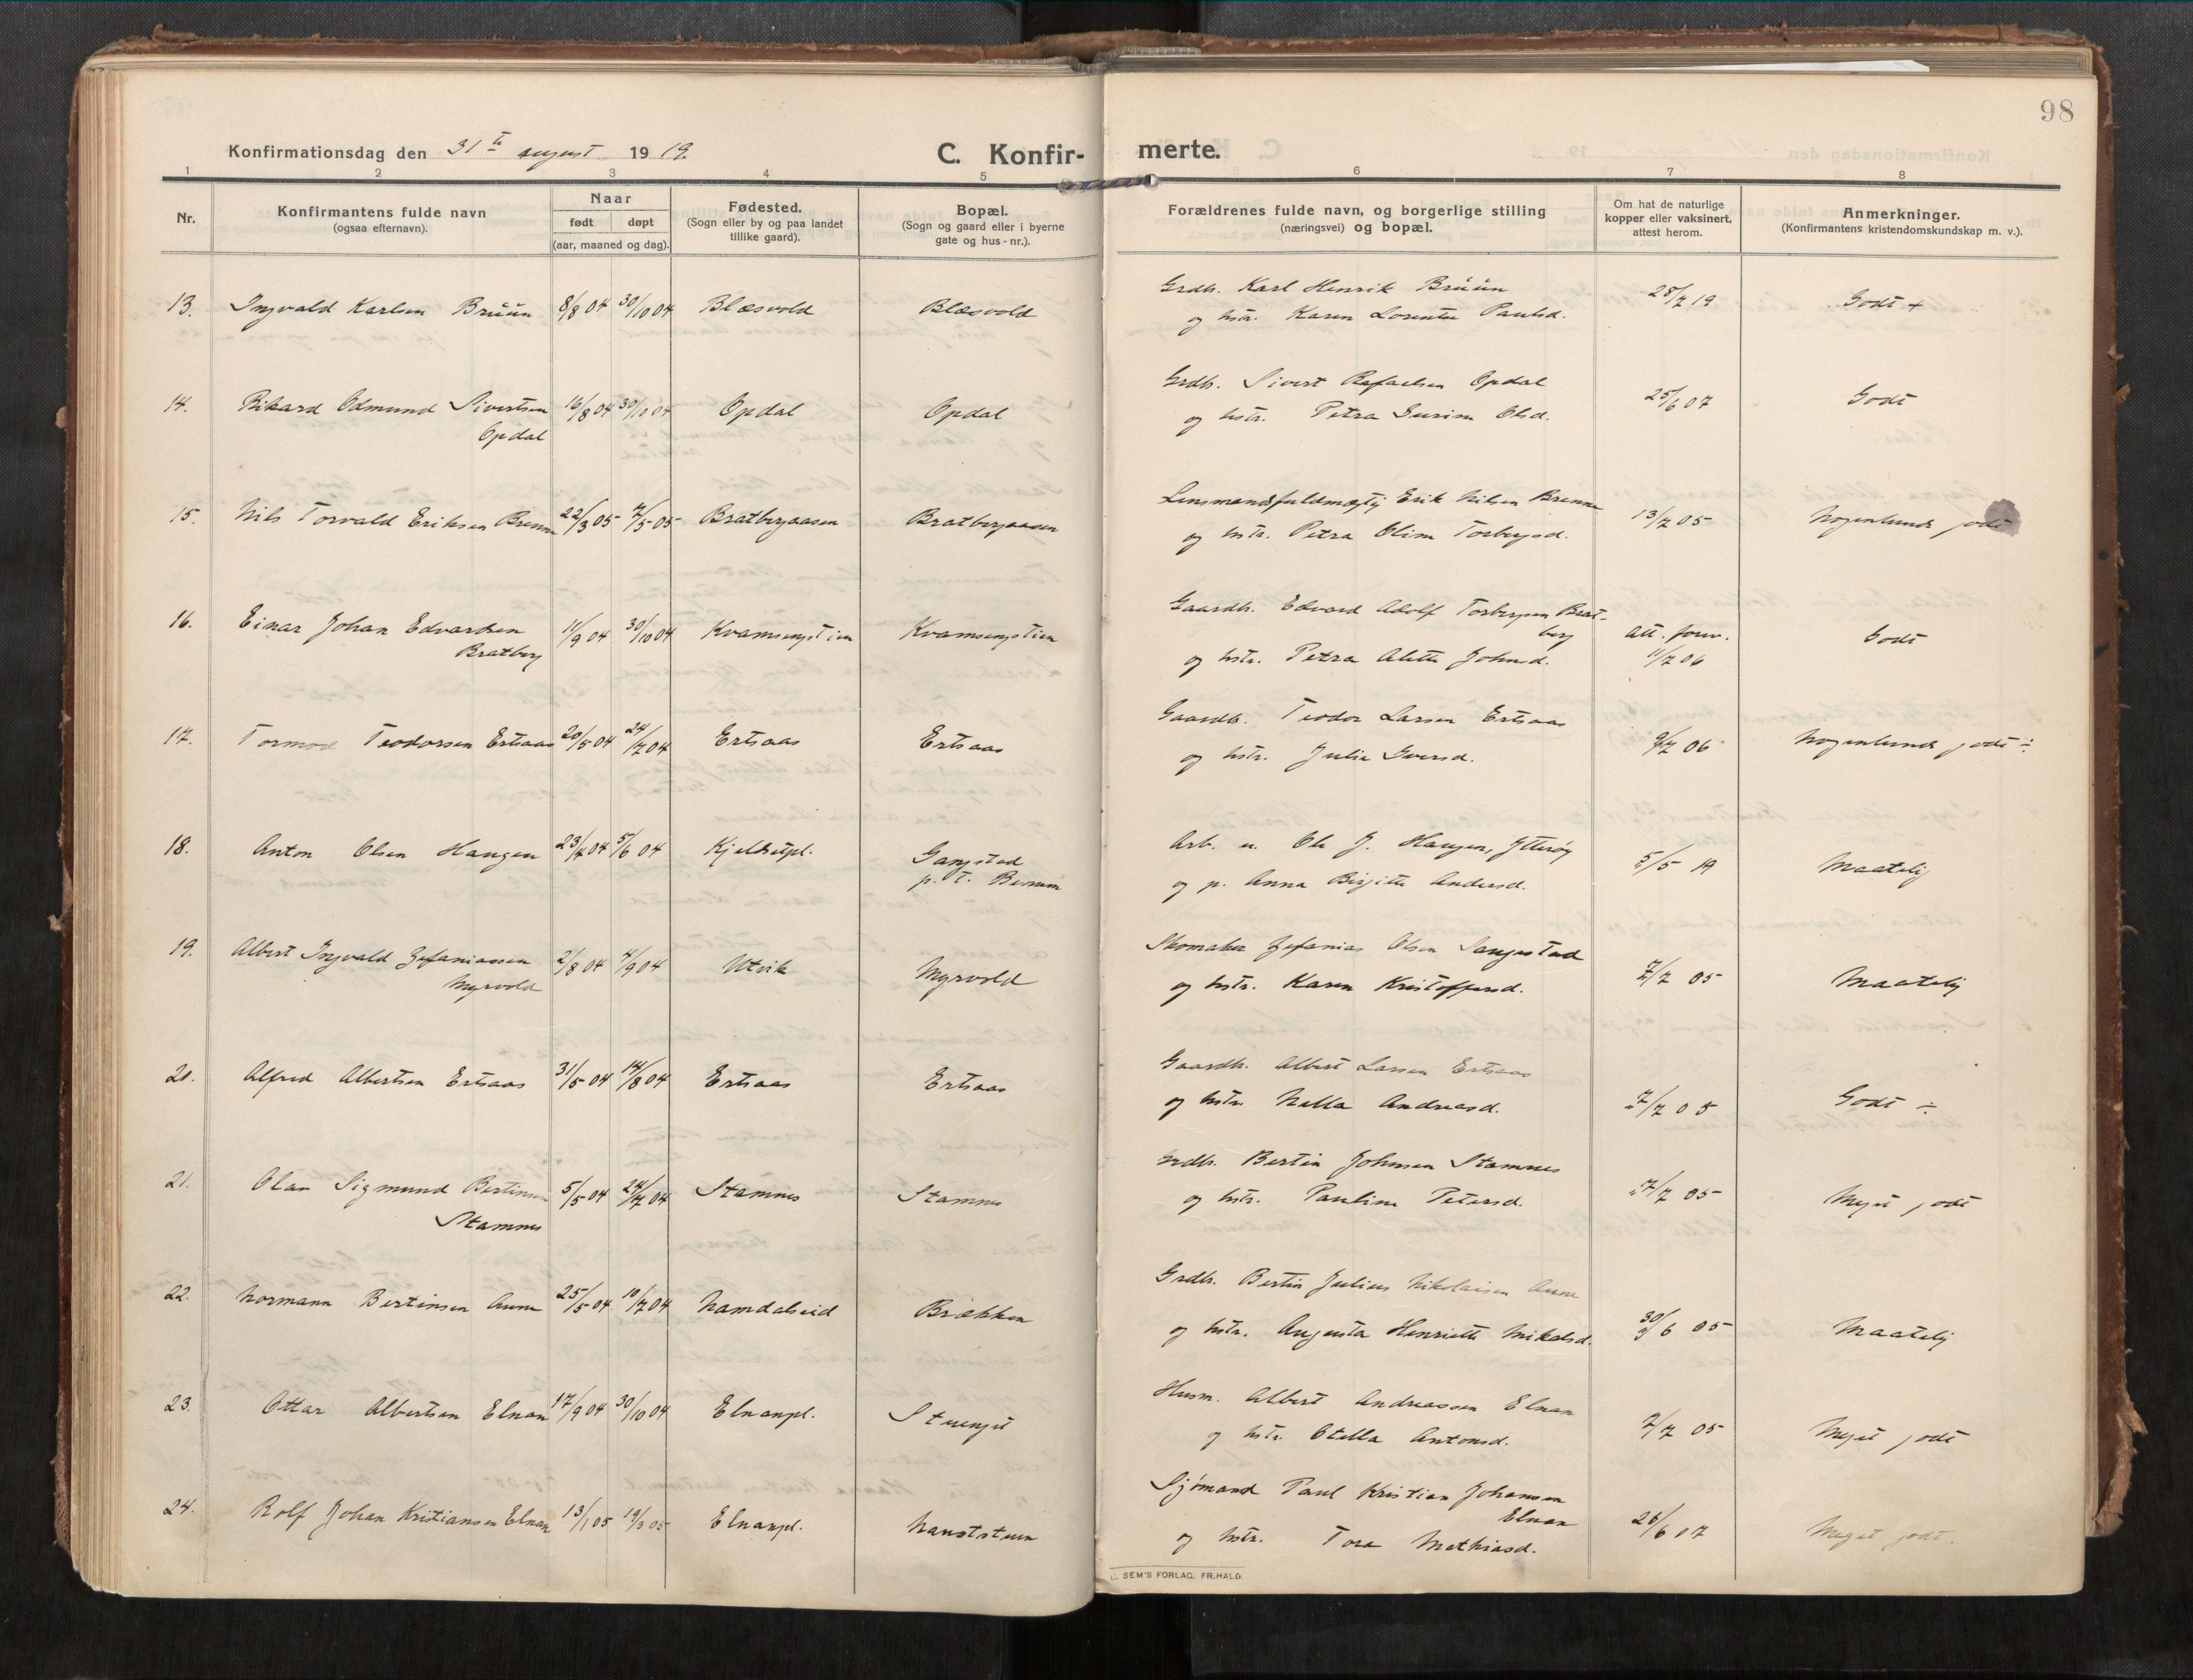 98
Konfirmationsdag den 31te august 1919.
C. Konfir-
merte.
1 2 3 4 5 6 7 8
Nr.
Konfirmantens fulde navn
(ogsaa efternavn).
Naar
født døpt
(aar, maaned og dag).
Fødested.
(Sogn eller by og paa landet
tillike gaard).
Bopæl.
(Sogn og gaard eller i byerne
gate og hus-nr.).
Forældrenes fulde navn, og borgerlige stilling
(næringsvei) og bopæl.
Om hat de naturlige
kopper eller vaksinert,
attest herom.
Anmerkninger.
(Konfirmantens kristendomskundskap m. v.).
13. Ingvald Karlsen Brüün 8/8 04 30/10 04 Blæsvold Blæsvold
Grdb. Karl Henrik Brüün
og hstr. Karen Lorentse Paulsd.
28/7 19 Godt +
14. Rikard Edmund Sivertsen
Opdal
16/8 04 30/10 04 Opdal Opdal
Grdb. Sivert Rafaelsen Opdal
og hstr. Petra Gurine Olsd.
25/6 07 Godt
15. Nils Torvald Eriksen Brenne 22/3 05 7/5 05 Bratbergaasen Bratbergaasen
Lensmandsfuldmægtig Erik Nilsen Brenne
og hstr. Petra Oline Torbergsd.
13/7 05 Nogenlunde godt
16. Einar Johan Edvardsen
Bratberg
11/9 04 30/10 04 Kvamsengstien Kvamsengstien
Gaardb. Edvard Adolf Torbergsen Brat-
berg
og hstr. Petra Alette Johnsd.
att. forev.
11/7 06
Godt
17. Tormod Teodorsen Ertsaas 20/5 04 24/7 04 Ertsaas Ertsaas
Gaardb. Teodor Larsen Ertsaas
og hstr. Julie Iversd.
9/7 06 Nogenlunde godt ÷
18. Anton Olsen Haugen 23/4 04 5/6 04 Kjeldsetpl. Gangstad
p. t. Benum
Arb. u. Ole J. Haugen, Ytterøy
og p. Anna Birgitte Andersd.
5/5 19 Maatelig
19. Albert Ingvald Zefaniassen
Myrvold
2/8 04 4/9 04 Utvik Myrvold
Skomaker Zefanias Olsen Saugestad
og hstr. Karen Kristoffersd.
7/7 05 Maatelig
20. Alfred Albertsen Ertsaas 31/5 04 14/8 04 Ertsaas Ertsaas
Gaardb. Albert Larsen Ertsaas
og hstr. Nella Andreasd.
7/7 05 Godt ÷
21. Olav Sigmund Bertinsen
Stamnes
5/5 04 24/7 04 Stamnes Stamnes
Grdb. Bertin Johnsen Stamnes
og hstr. Pauline Petersd.
7/7 05 Meget godt
22. Normann Bertinsen Aune 25/5 04 10/7 04 Namdalseid Brækken
Grdb. Bertin Julius Nikolaisen Aune
og hstr. Augusta Henriette Mikalsd.
30/6 05 Maatelig
23. Ottar Albertsen Elnan 17/9 04 30/10 04 Elnanpl. Stuenget
Husm. Albert Andreassen Elnan
og hstr. Otella Antonsd.
7/7 05 Meget godt
24. Rolf Johan Kristiansen Elnan 13/1 05 19/3 05 Elnanpl. Nauststuen
Sjømand Paul Kristian Johansen
Elnan
og hstr. Tora Mathiasd.
26/6 07 Meget godt.
SEM'S FORLAG, FR.HALD.